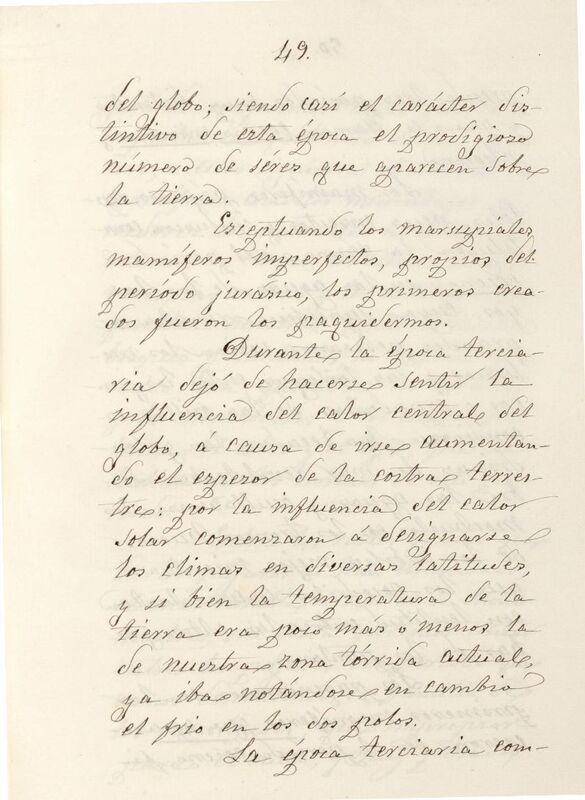 49.
del globo; siendo casi el carácter dis-
tintivo de esta época el prodigioso
número de séres que aparecen sobre
la tierra.
Esceptuando los marsupiales,
mamíferos imperfectos, propios del
periodo jurásico, los primeros crea-
dos fueron los paquidermos.
Durante la época tercia-
ria dejó de hacerse sentir la
influencia del calor central del
globo, á causa de irse aumentan-
do el espesor de la costra terres-
tre: por la influencia del calor
solar comenzaron á designarse
los climas en diversas latitudes,
y si bien la temperatura de la
tierra era poco más ó menos la
de nuestra zona tórrida actual,
ya iba notándose en cambio
el frio en los dos polos.
La época terciaria com-